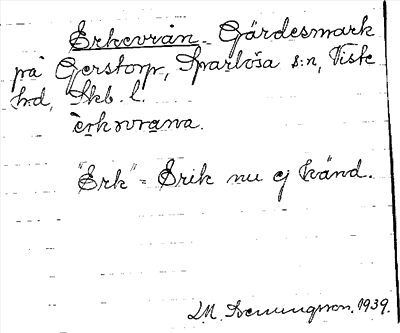 Erkevrån - Gärdesmark
på Gerstorp, Sparlösa s:n, Viste
h:d, Skb. l.
èrkevrana.
"Erk" = Erik nu ej känd.
1939.